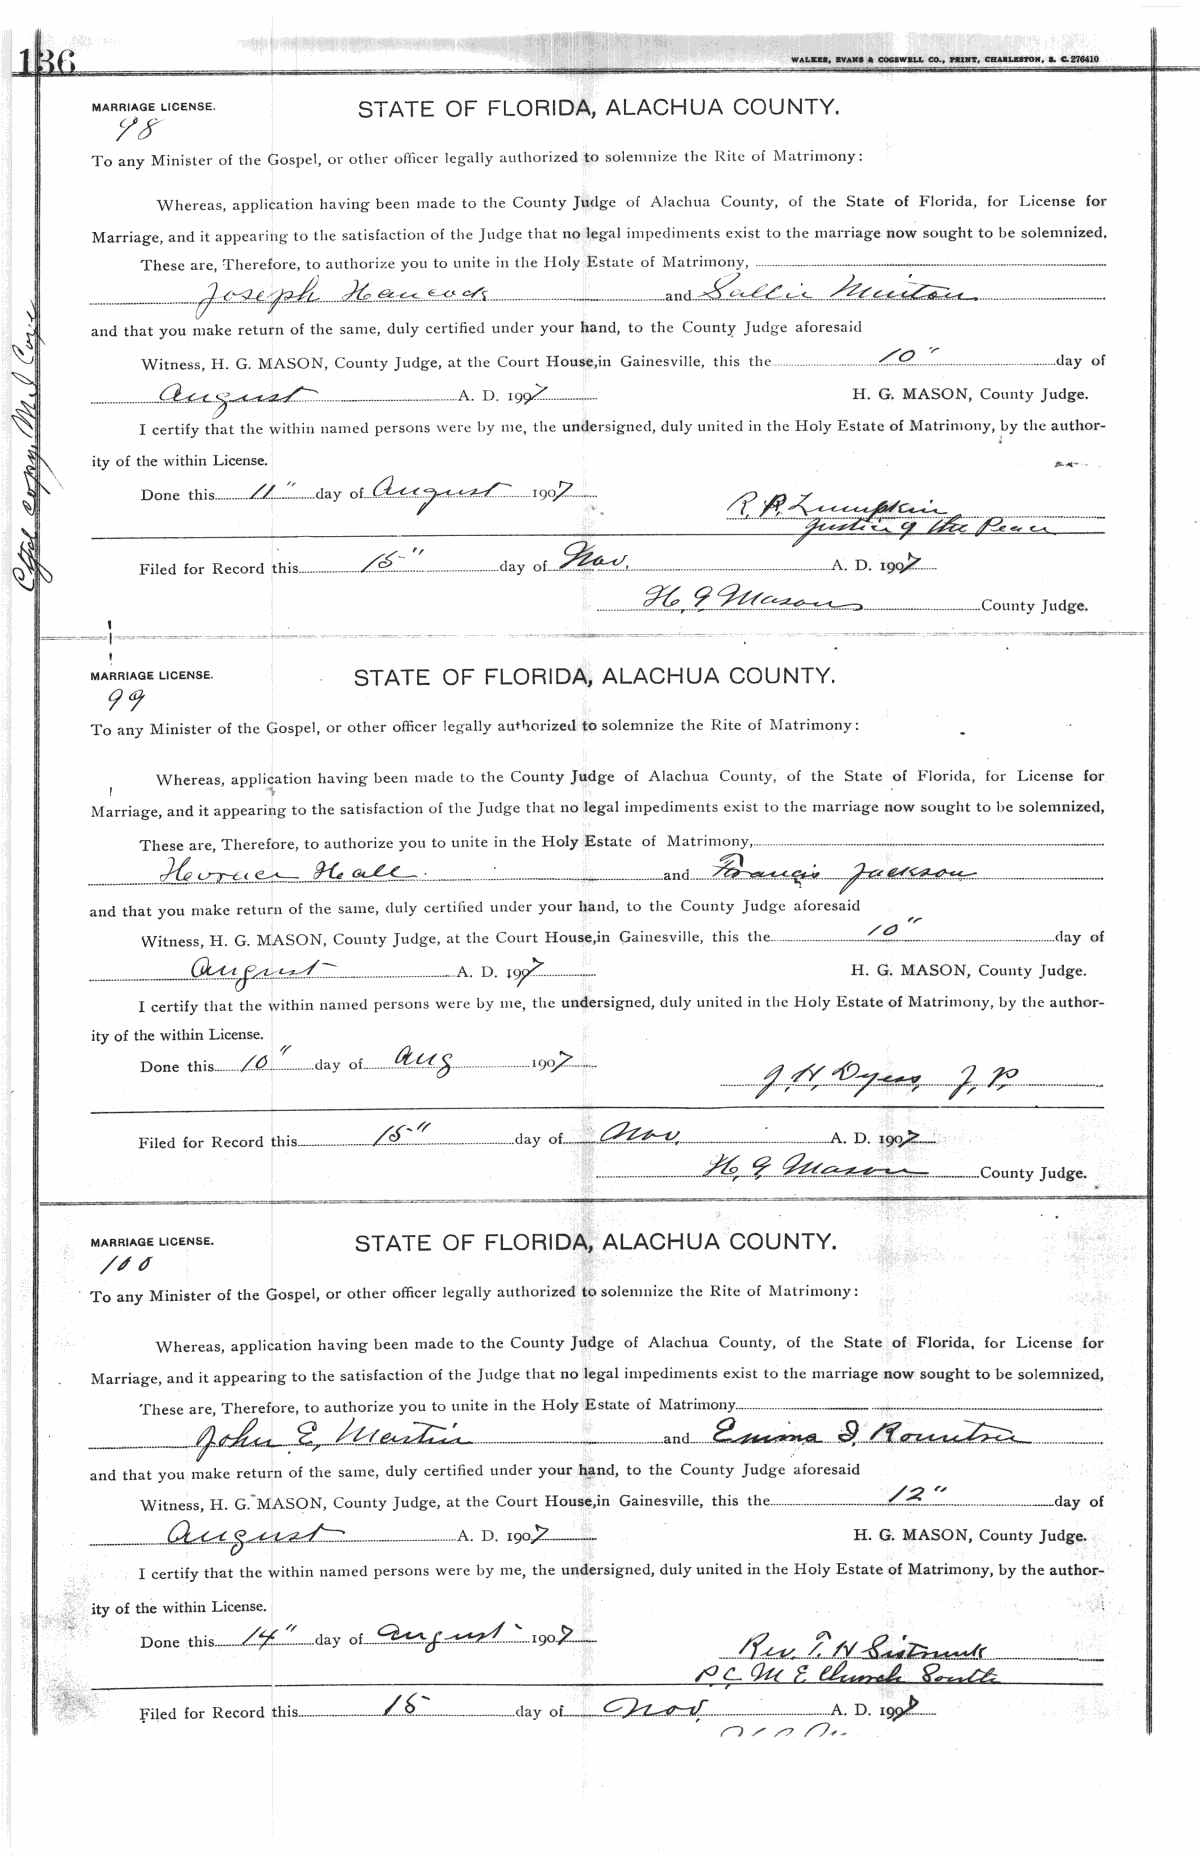 136
WALKER, EVANS & COGSWELL CO., PRINT, CHARLESTON, S. C. 276410
MARRIAGE LICENSE. STATE OF FLORIDA, ALACHUA COUNTY.
98
To any Minister of the Gospel, or other officer legally authorized to solemnize the Rite of Matrimony:
Whereas, application having been made to the County Judge of Alachua County, of the State of Florida, for License for
Marriage, and it appearing to the satisfaction of the Judge that no legal impediments exist to the marriage now sought to be solemnized,
These are, Therefore, to authorize you to unite in the Holy Estate of Matrimony,
Joseph Hancock and Sallie Minton
and that you make return of the same, duly certified under your hand, to the County Judge aforesaid
Witness, H. G. MASON, County Judge, at the Court House, in Gainesville, this the 10" day of
August A. D. 1907 H. G. MASON, County Judge.
I certify that the within named persons were by me, the undersigned, duly united in the Holy Estate of Matrimony, by the author-
ity of the within License.
Done this 11" day of August 1907
R. R. Lumpkin
Justice of the Peace
Filed for Record this 15" day of Nov. A. D. 1907
H. G. Mason County Judge.
Ctfd copy
MARRIAGE LICENSE. STATE OF FLORIDA, ALACHUA COUNTY.
99
To any Minister of the Gospel, or other officer legally authorized to solemnize the Rite of Matrimony:
Whereas, application having been made to the County Judge of Alachua County, of the State of Florida, for License for
Marriage, and it appearing to the satisfaction of the Judge that no legal impediments exist to the marriage now sought to be solemnized,
These are, Therefore, to authorize you to unite in the Holy Estate of Matrimony,
Hall and Francis Jackson
and that you make return of the same, duly certified under your hand, to the County Judge aforesaid
Witness, H. G. MASON, County Judge, at the Court House, in Gainesville, this the 10" day of
August A. D. 1907 H. G. MASON, County Judge.
I certify that the within named persons were by me, the undersigned, duly united in the Holy Estate of Matrimony, by the author-
ity of the within License.
Done this 10" day of Aug 1907
J. H. Dyess, J. P.
Filed for Record this 15" day of Nov. A. D. 1907
H. G. Mason County Judge.
MARRIAGE LICENSE. STATE OF FLORIDA, ALACHUA COUNTY.
100
To any Minister of the Gospel, or other officer legally authorized to solemnize the Rite of Matrimony:
Whereas, application having been made to the County Judge of Alachua County, of the State of Florida, for License for
Marriage, and it appearing to the satisfaction of the Judge that no legal impediments exist to the marriage now sought to be solemnized,
These are, Therefore, to authorize you to unite in the Holy Estate of Matrimony
John E. Martin and Emma I. Rountree
and that you make return of the same, duly certified under your hand, to the County Judge aforesaid
Witness, H. G. MASON, County Judge, at the Court House, in Gainesville, this the 12" day of
August A. D. 1907 H. G. MASON, County Judge.
I certify that the within named persons were by me, the undersigned, duly united in the Holy Estate of Matrimony, by the author-
ity of the within License.
Done this 14" day of August 1907
Rev. T. H Sistrunk
P. C. M E Church South
Filed for Record this 15 day of Nov. A. D. 1907